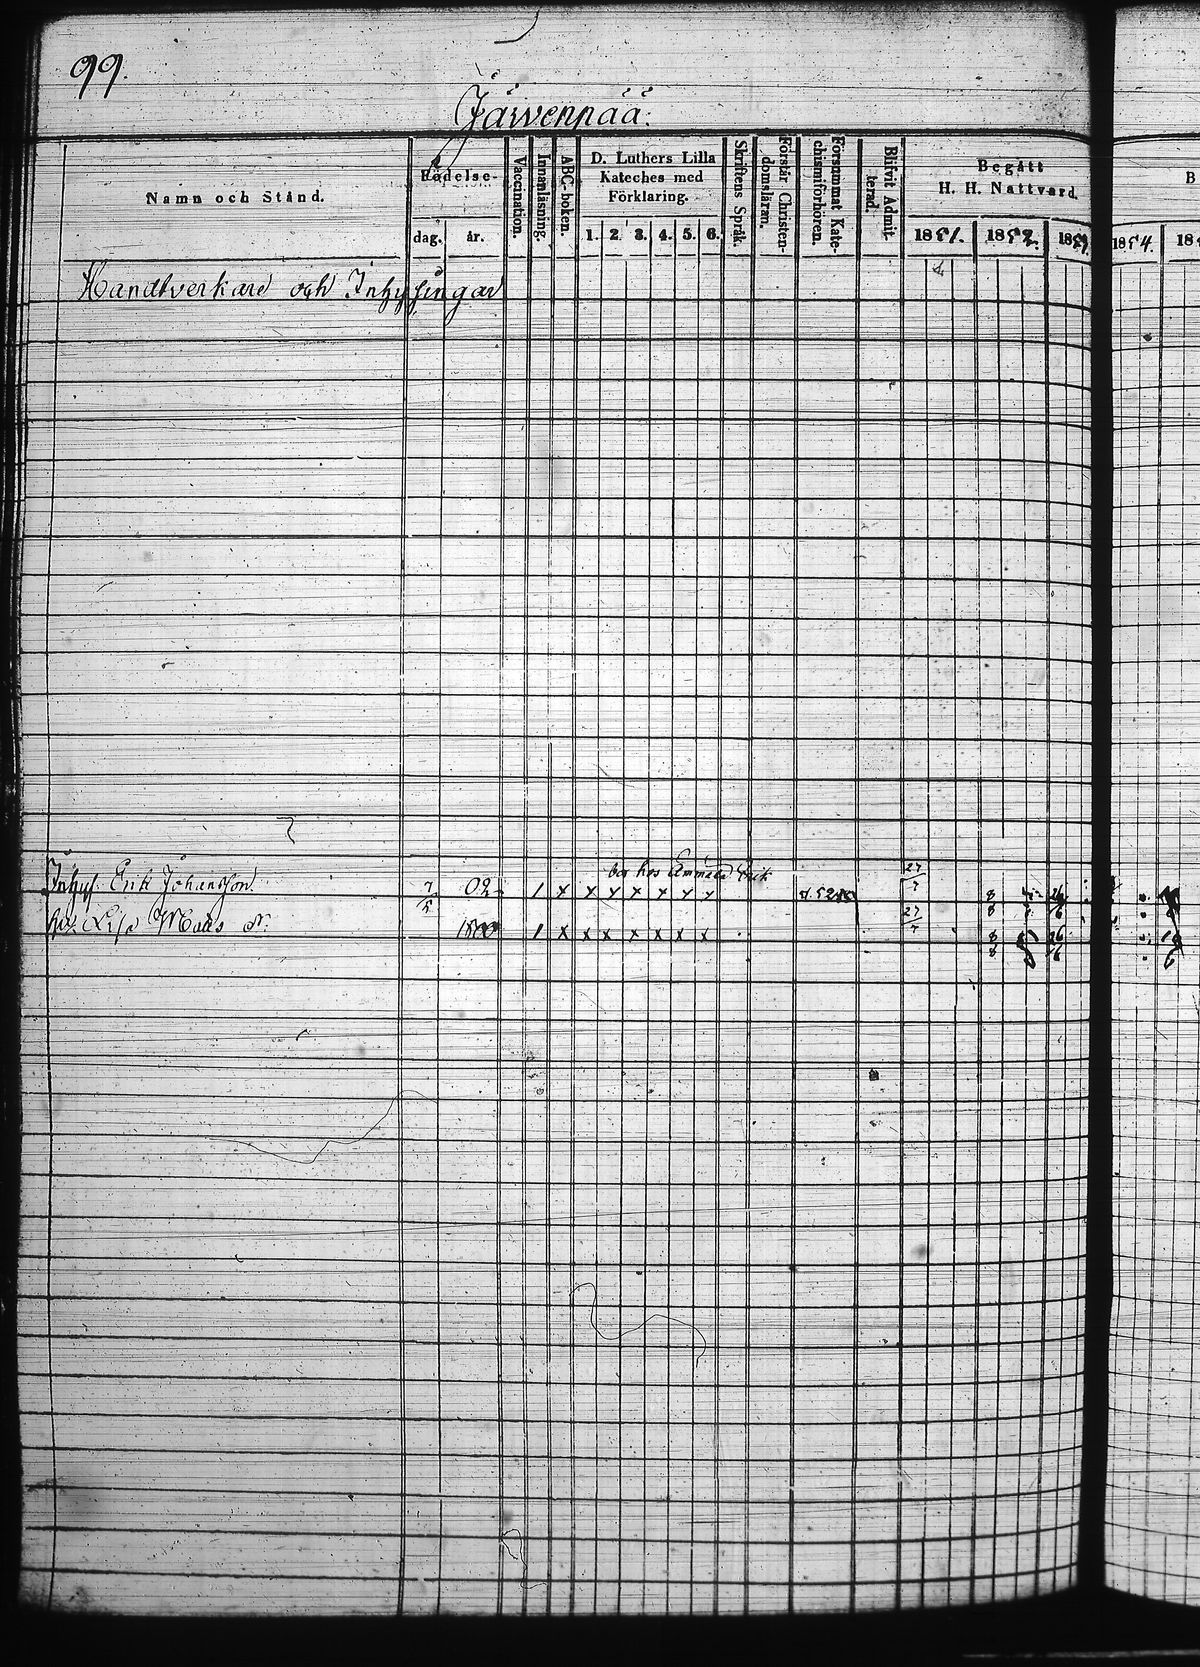 99.
Järvenpää.
Namn och Stånd.
Födelse-
dag.
år.
Vaccination.
Innanläsning.
ABC-boken.
D. Luthers Lilla
Kateches med
Förklaring.
1. 2. 3. 4. 5. 6.
Skriftens Språk.
Förstår Christen-
domsläran.
Försummat Kate-
chismiförhören.
Blifvit Admit-
terad.
Begått
H. H. Nattvard.
1851. 1852. 1853. 1854. 18
B
Handtverkare och Inhysingar
bor hos Erik
Inhys. Erik Johansson 7/5 02 1 x x x x x x x 27/7 8 26
Lisa Mats dr. 1800 1 x x x x x x x 27/7 8 26